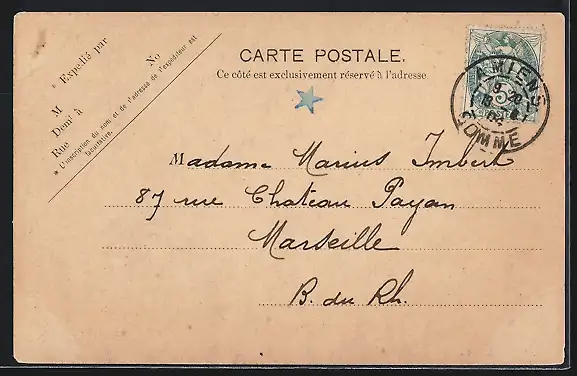 * Expédié par
M
No
Demt à
Rue
* L'inscription du nom et de l'adresse de l'expéditeur est
facultative.
CARTE POSTALE.
Ce côté est exclusivement réservé à l'adresse
AMIENS
SOMME
5
Madame Marius Imbert
87 rue Chateau Payan
Marseille
B. du Rh.